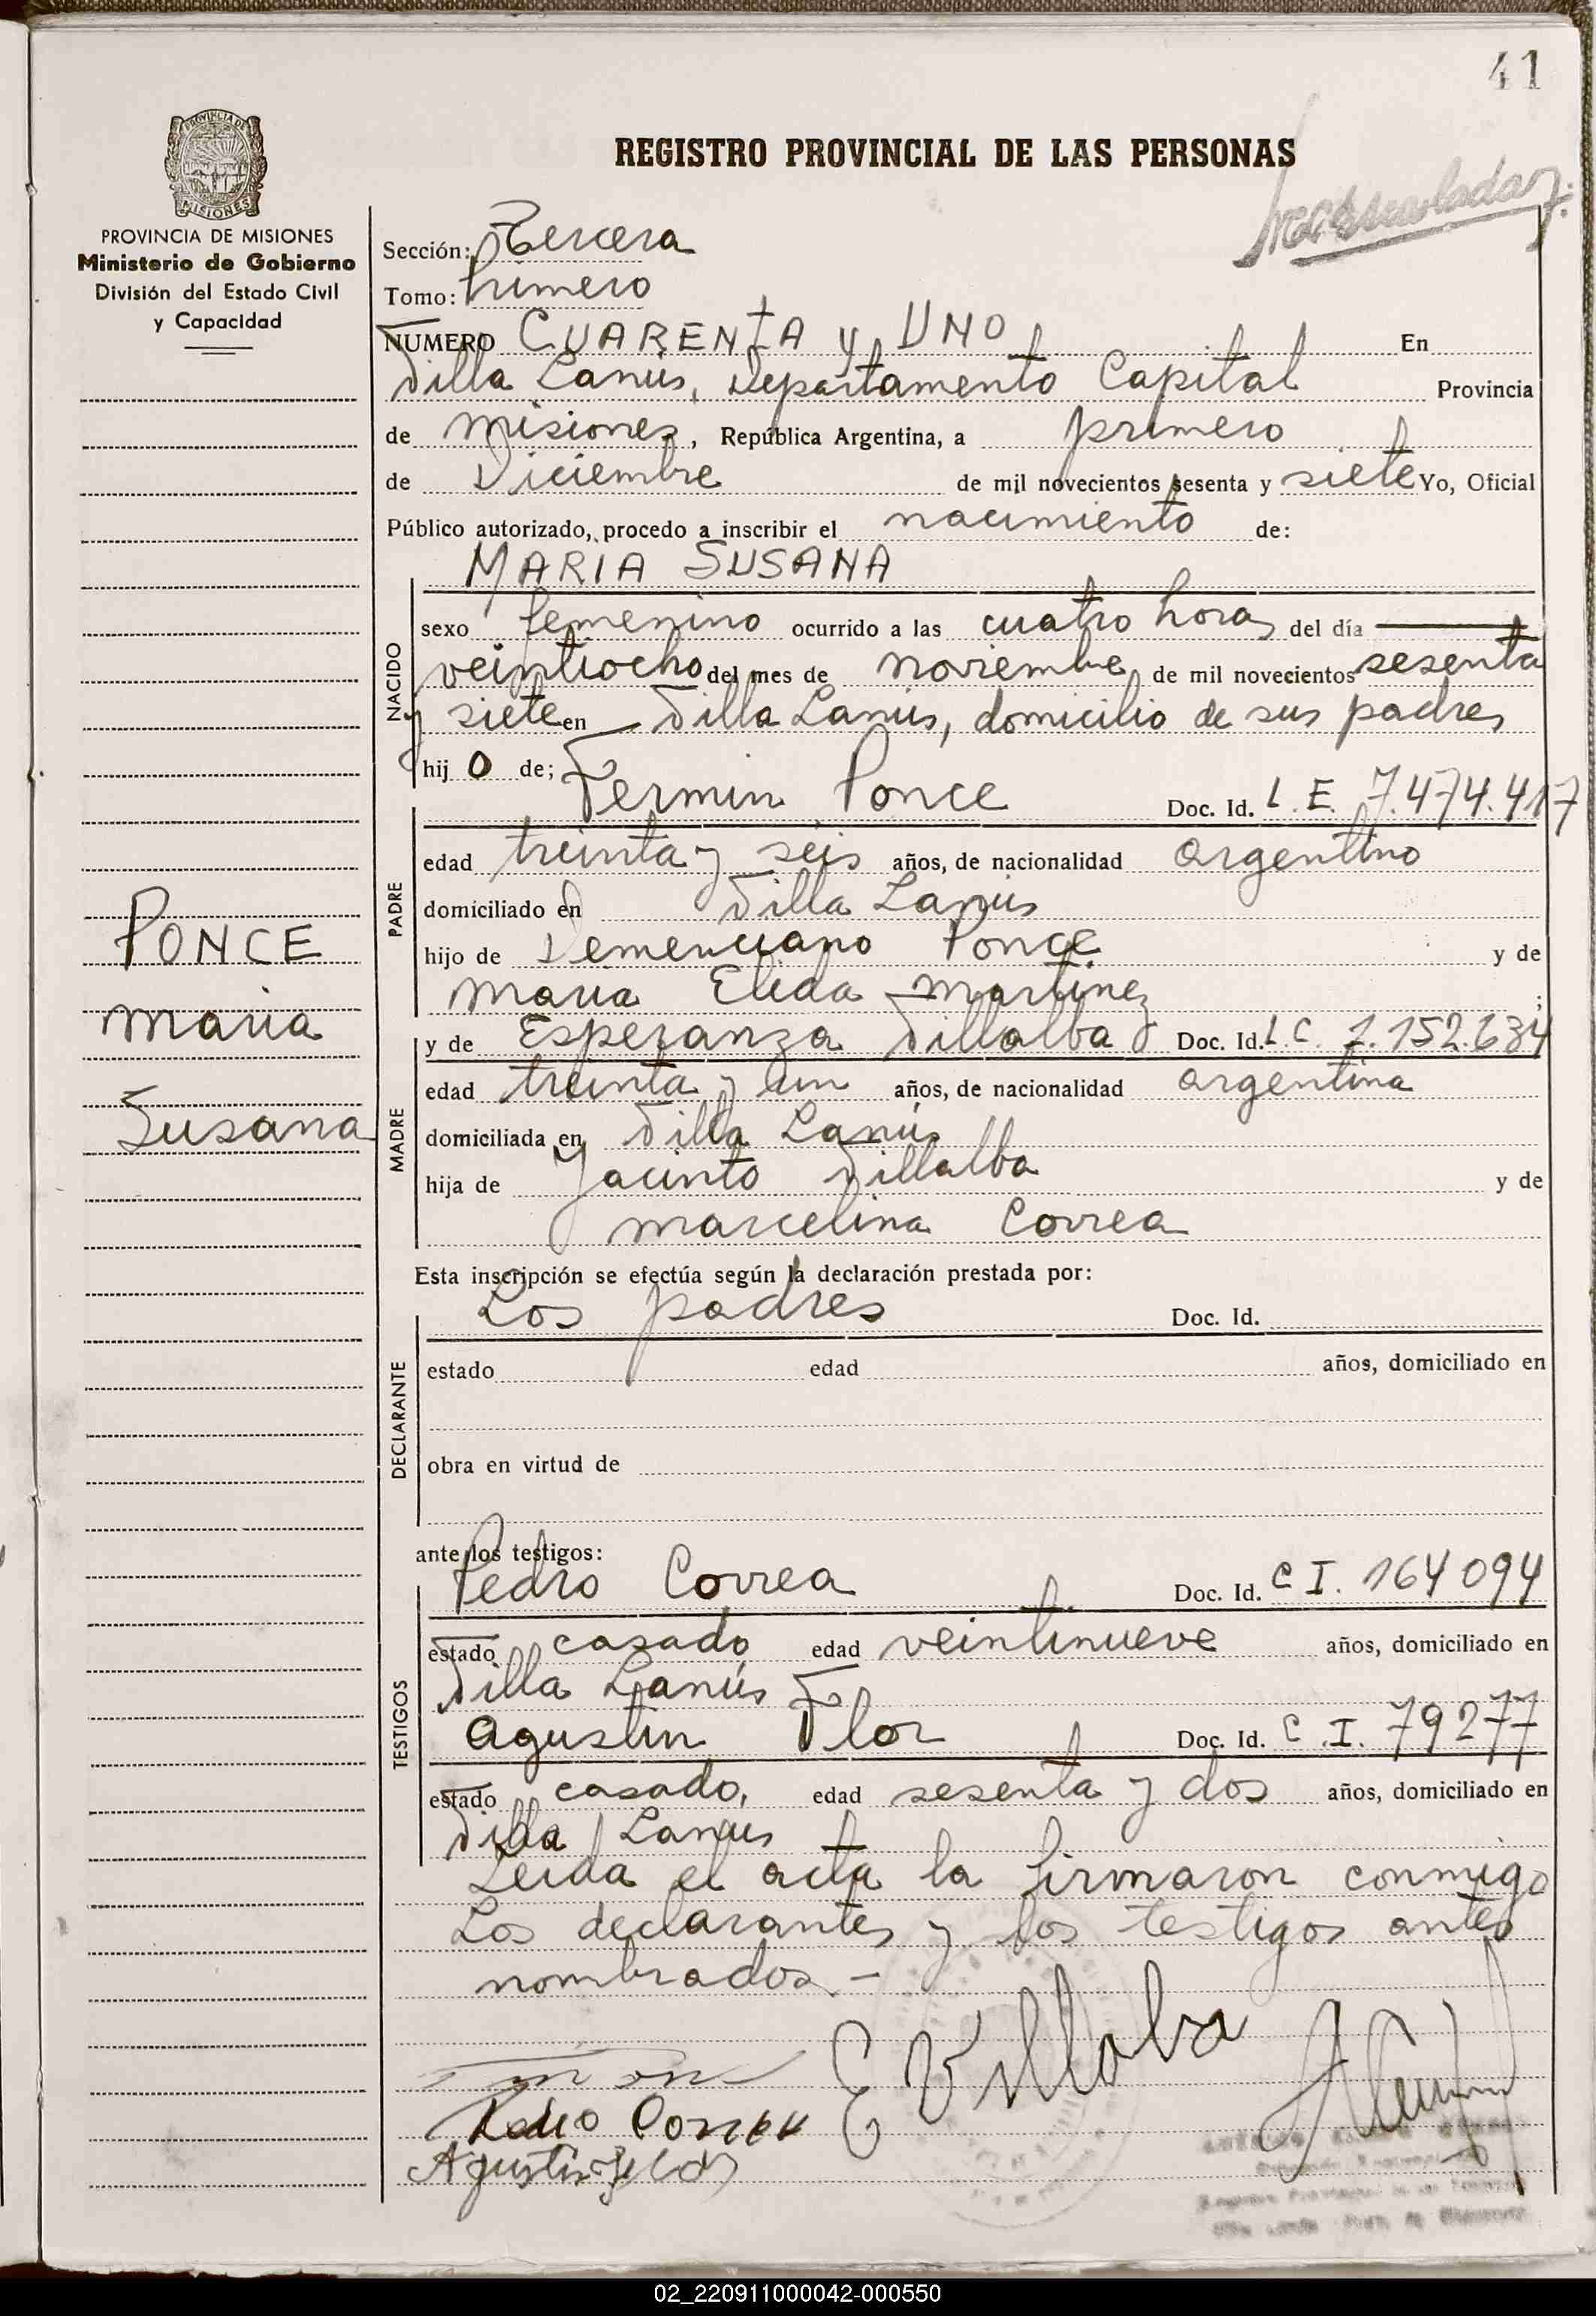 41
REGISTRO PROVINCIAL DE LAS PERSONAS
PROVINCIA DE MISIONES
MISIONES
PROVINCIA DE MISIONES
Ministerio de Gobierno
División del Estado Civil
y Capacidad
Sección: Tercera
Tomo: Primero
NUMERO CUARENTA y UNO En
Villa Lanús, Departamento Capital Provincia
de Misiones, República Argentina, a primero
de Diciembre de mil novecientos sesenta y siete Yo, Oficial
Público autorizado, procedo a inscribir el nacimiento de:
MARIA SUSANA
NACIDO
sexo femenino ocurrido a las cuatro horas del día
veintiocho del mes de noviembre de mil novecientos sesenta
y siete en Villa Lanús, domicilio de sus padres
hij o de; Fermin Ponce Doc. Id. L. E. 7.474.417
PADRE
edad treinta y seis años, de nacionalidad argentino
domiciliado en Villa Lanús
hijo de Demenciano Ponce y de
Maria Elida Martinez ;
y de Esperanza Villalba Doc. Id. L.C. 1.152.634
MADRE
edad treinta y un años, de nacionalidad argentina
domiciliada en Villa Lanús
hija de Jacinto Villalba y de
Marcelina Correa
PONCE
Maria
Susana
Esta inscripción se efectúa según la declaración prestada por:
Los padres Doc. Id.
DECLARANTE
estado edad años, domiciliado en
obra en virtud de
ante los testigos:
Pedro Correa Doc. Id. C I. 164 094
TESTIGOS
estado casado edad veintinueve años, domiciliado en
Villa Lanús
Agustin Flor Doc. Id. C.I. 79277
estado casado, edad sesenta y dos años, domiciliado en
Villa Lanus
Leida el acta la firmaron conmigo
Los declarantes y los testigos antes
nombrados.-
E Villalba
Pedro Correa
Agustin Flor
02_220911000042-000550